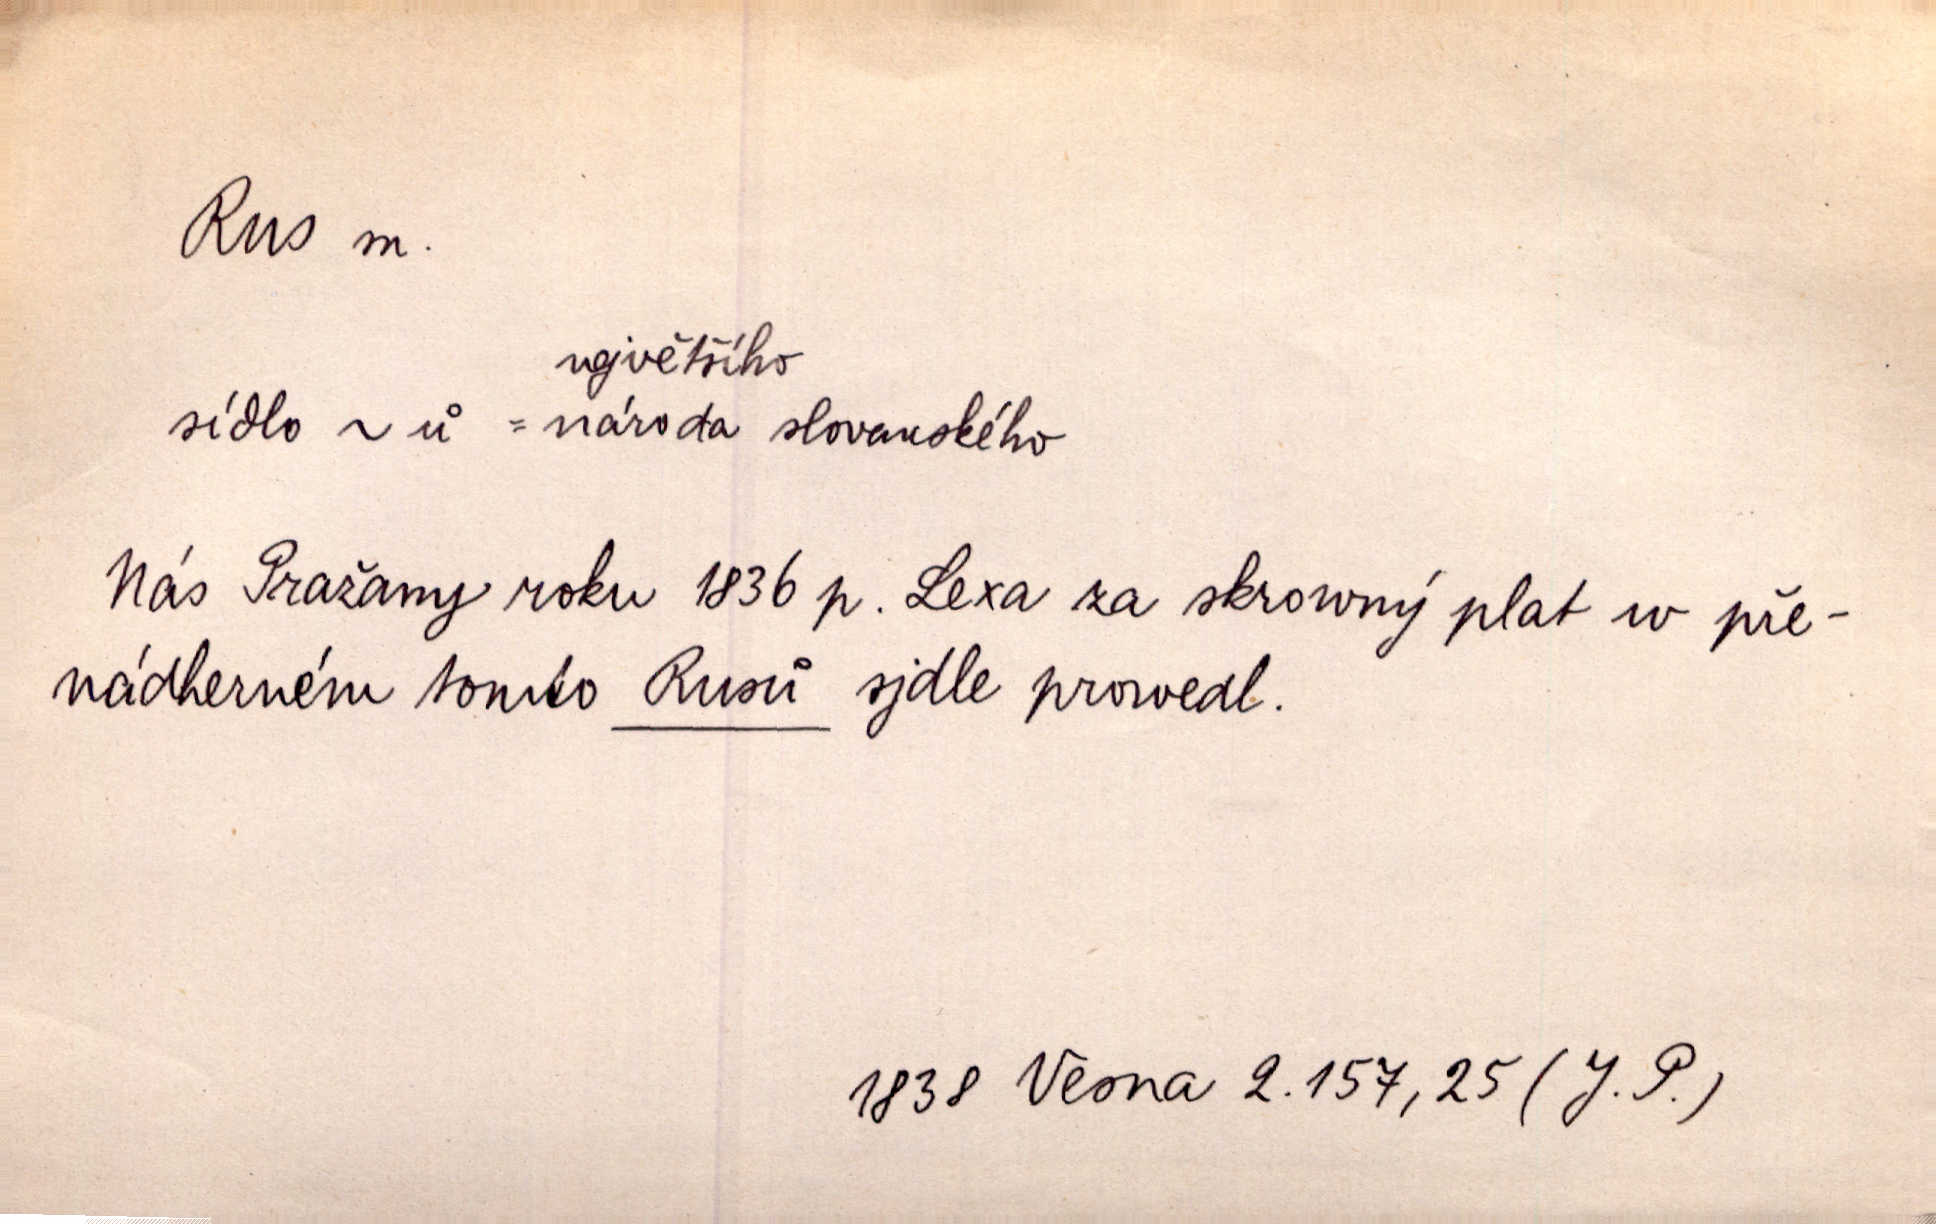 Rus m.
největšího
sídlo ~ ů = národa slovanského
Nás Pražany roku 1836 p. Lexa za skrowný plat w pře-
nádherném tomto Rusů sjdle prowedl.
1838 Vesna 2.157,25 (J. P.)